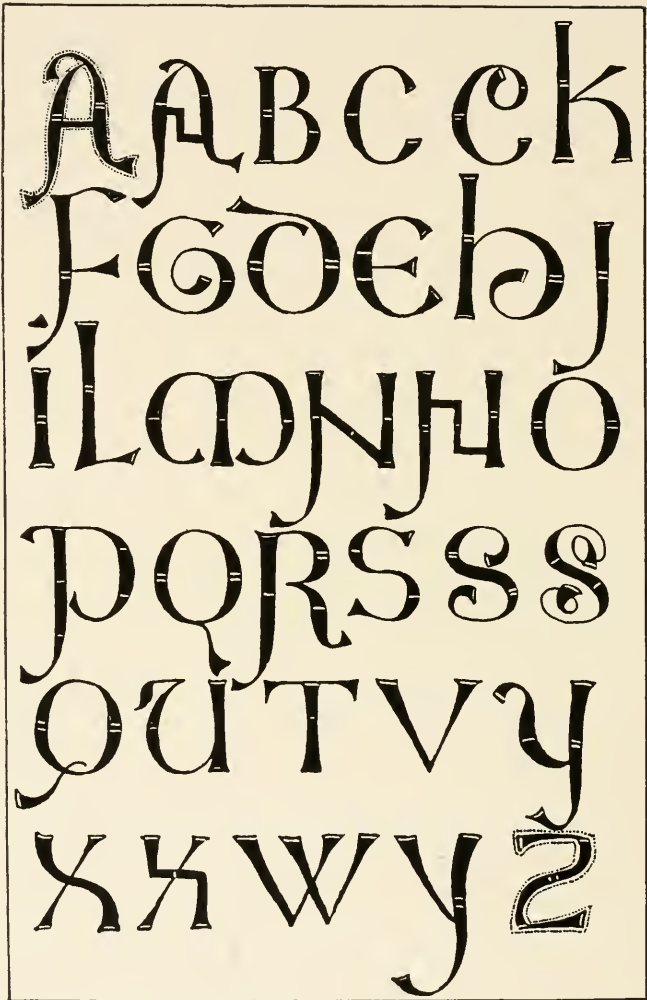 A A B C C K
F G D E h J
I L M N N O
P Q R S S S
Q U T V Y
X X W Y Z